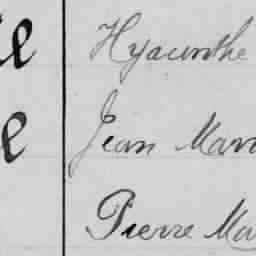 Hyacinthe
Jean Mari
Pierre Ma